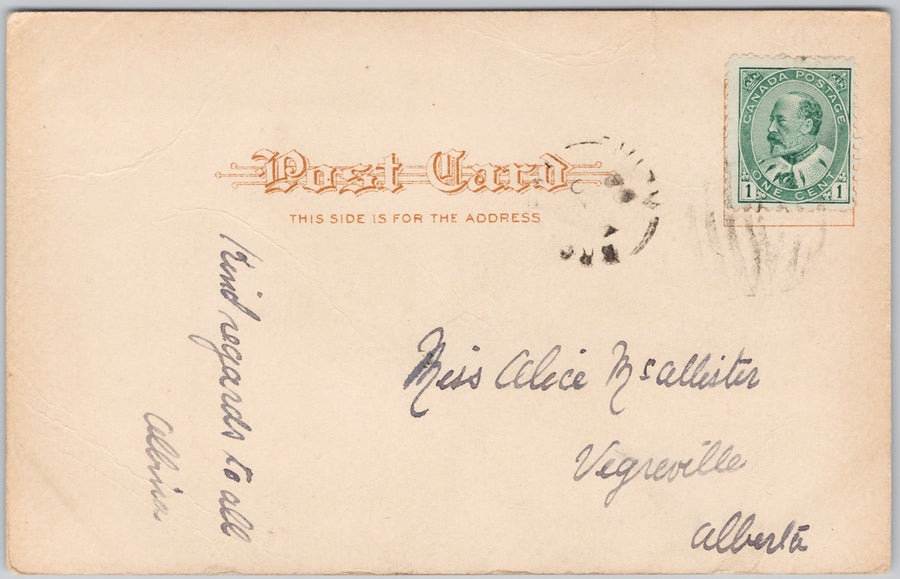 CANADA POSTAGE
1 ONE CENT 1
Post Card
THIS SIDE IS FOR THE ADDRESS
Kind regards to all
Albina
Miss Alice McAllister
Vegreville
Alberta